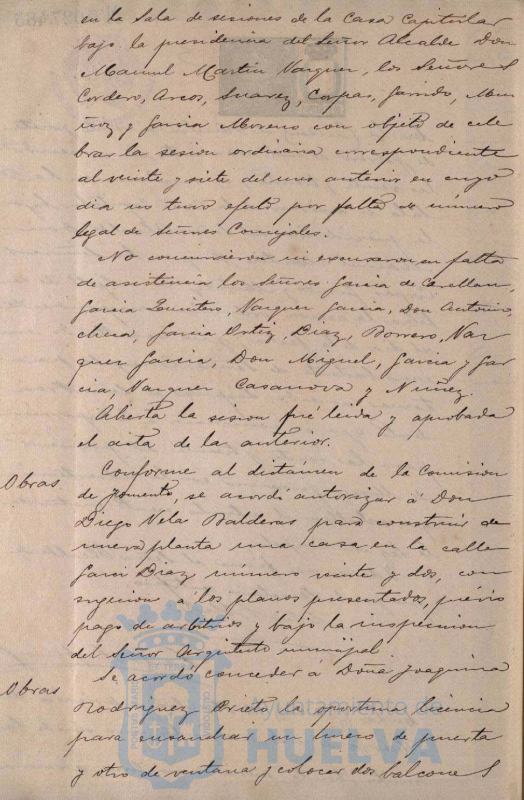 en la Sala de sesiones de la casa Capitular
bajo la presidencia del Señor Alcalde Don
Manuel Martin Vazquez, los Señores
Cordero, Arcos, Suarez, Corpas, Garrido, Mu-
ñoz y Garcia Moreno con objeto de cele-
brar la sesion ordinaria correspondiente
al veinte y siete del mes anterior en cuyo
dia no tuvo efecto por falta de número
legal de Señores Concejales.
No concurrieron ni excusaron su falta
de asistencia los Señores Garcia de
Garcia Quintero, Vazquez Garcia, Don Antonio,
Garcia Ortiz, Diaz, Borrero, Vaz-
quez Garcia, Don Miguel, Garcia y Gar-
cia, Vazquez Casanova y Nuñez.
Abierta la sesion fué leida y aprobada
el acta de la anterior.
Obras Conforme al dictámen de la Comision
de fomento, se acordó autorizar á Don
Diego Vela Balderas para construir de
nueva planta una casa en la calle
Garci Diaz número veinte y dos, con
sugecion á los planos presentados, prévio
pago de arbitrios y bajo la inspeccion
del Señor Arquitecto municipal
Obras Se acordó conceder á Doña Joaquina
Rodriguez Prieto la oportuna licencia
para ensanchar un hueco de puerta
y otro de ventana y colocar dos balcones
Ayuntamiento de
HUELVA